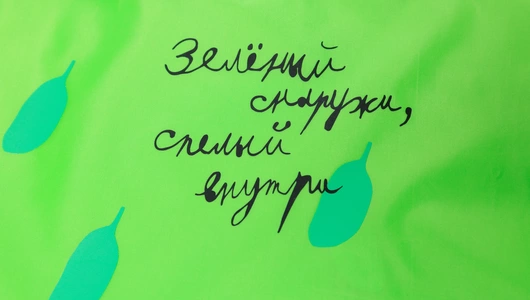 Зелёный
снаружи,
спелый
внутри